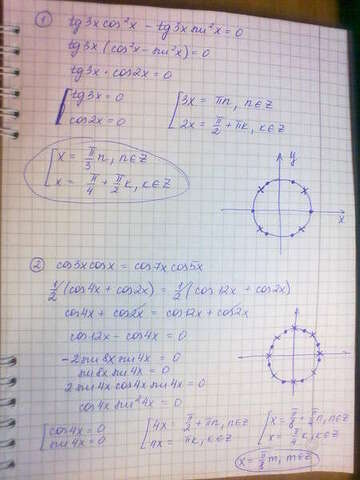 ① tg3x cos²x - tg3x sin²x = 0
tg3x (cos²x - sin²x) = 0
tg3x · cos2x = 0
[ tg3x = 0 [ 3x = πn, n∈Z
cos2x = 0 2x = π/2 + πk, k∈Z
[ x = π/3 n, n∈Z
x = π/4 + π/2 k, k∈Z
y
x
② cos3x cosx = cos7x cos5x
1/2 (cos4x + cos2x) = 1/2 (cos12x + cos2x)
cos4x + cos2x = cos12x + cos2x
cos12x - cos4x = 0
-2 sin8x sin4x = 0
sin8x sin4x = 0
2 sin4x cos4x sin4x = 0
cos4x sin²4x = 0
[ cos4x = 0 [ 4x = π/2 + πn, n∈Z [ x = π/8 + π/4 n, n∈Z
sin4x = 0 4x = πk, k∈Z x = π/4 k, k∈Z
x = π/8 m, m∈Z